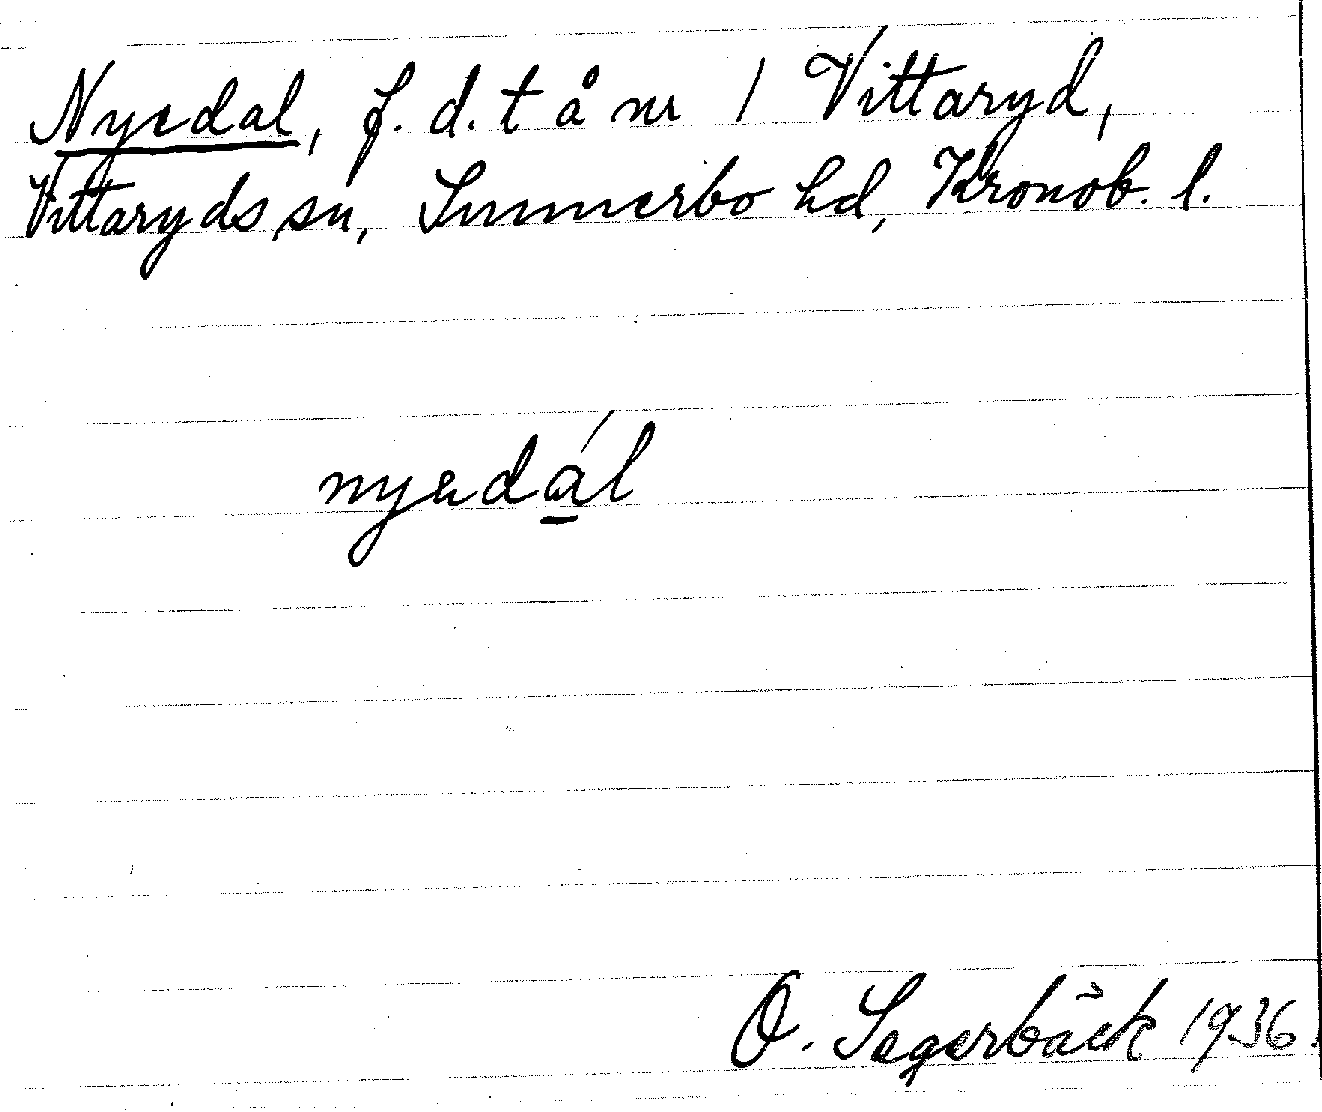 Nyedal, f. d. t å nr 1 Vittaryd,
Vittaryds sn, Sunnerbo hd, Kronob. l.
nyadál
O. Segerbäck 1936.